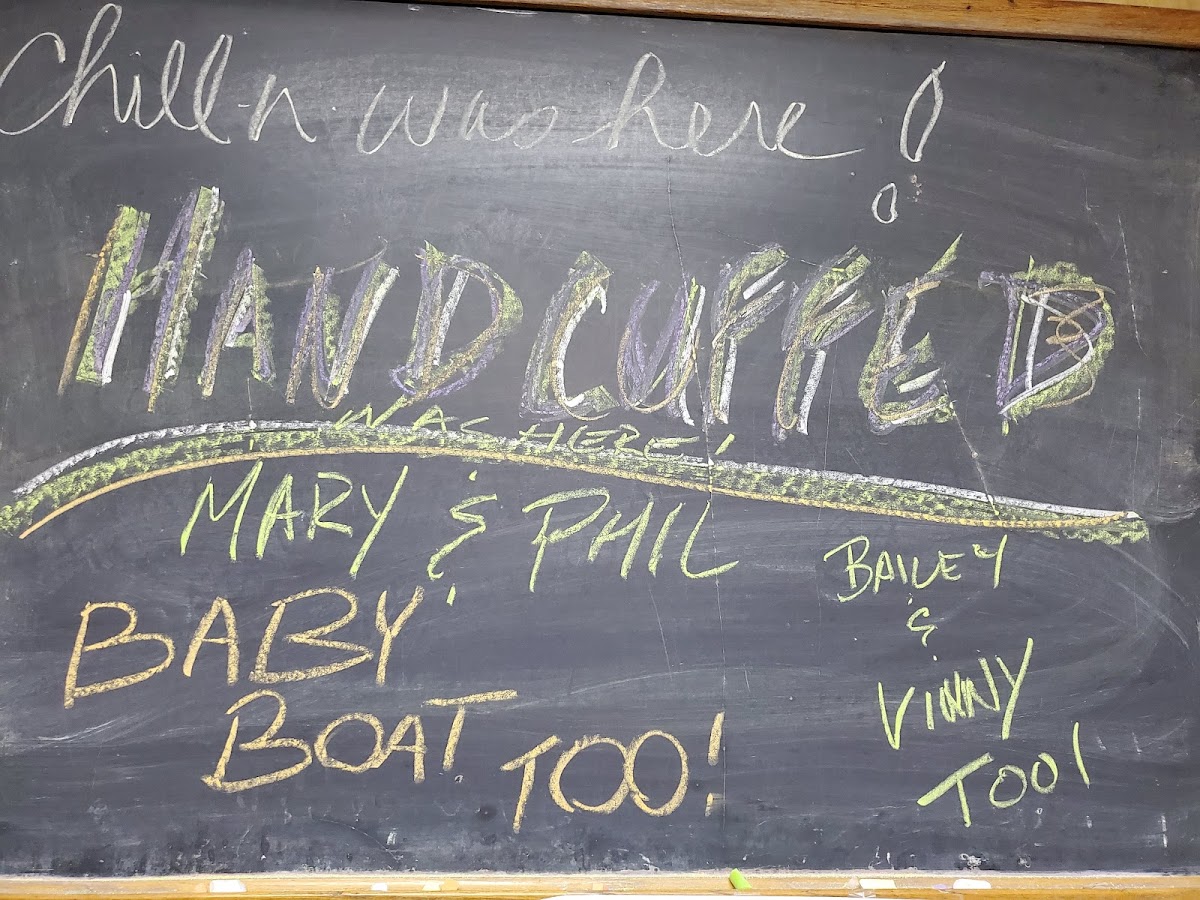 Chill-n was here!
HANDCUFFED
WAS HERE!
MARY & PHIL
BABY
BOAT TOO!
BAILEY
&
VINNY
TOO!